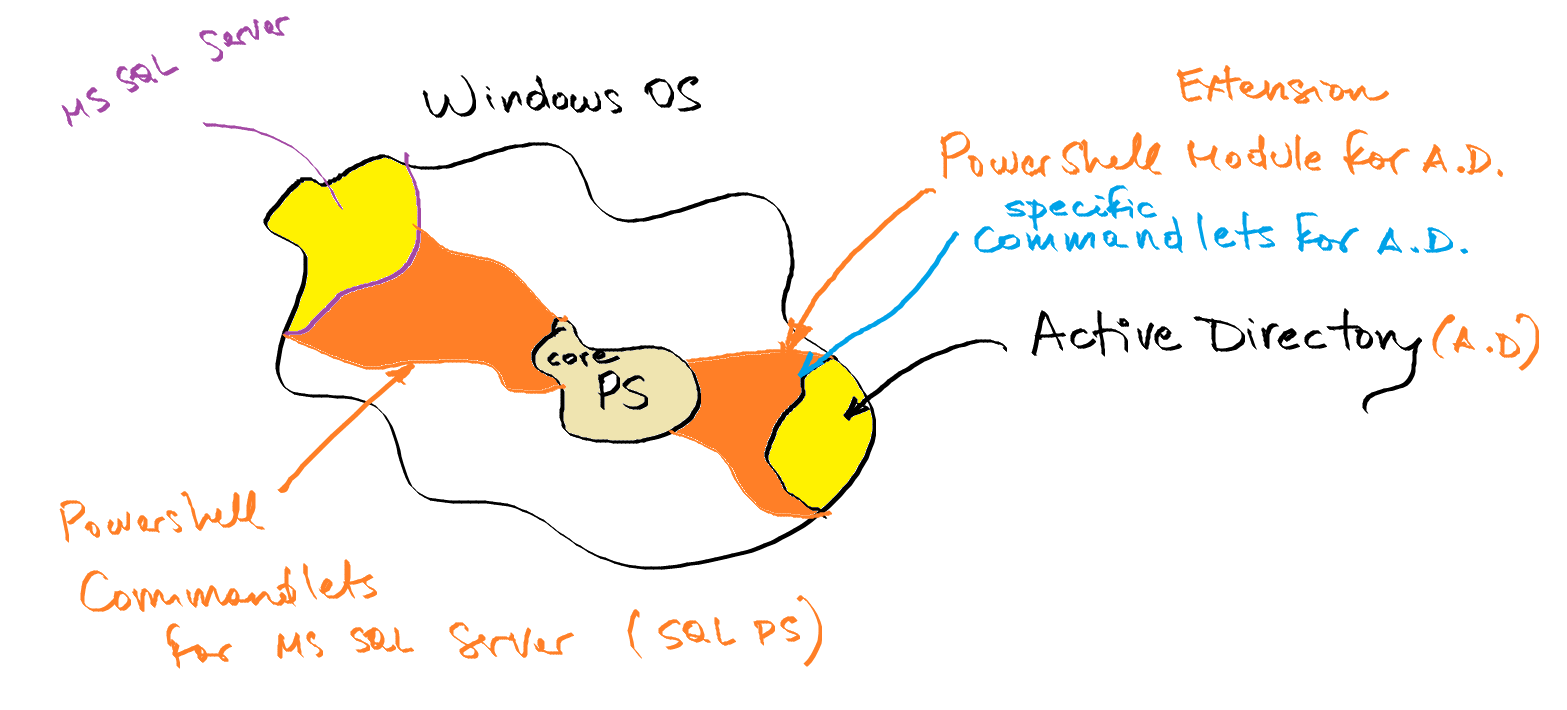 MS SQL Server
Windows OS
Extension
PowerShell Module for A.D.
specific
Commandlets for A.D.
Active Directory (A.D)
core
PS
Powershell
Commandlets
for MS SQL Server (SQL PS)